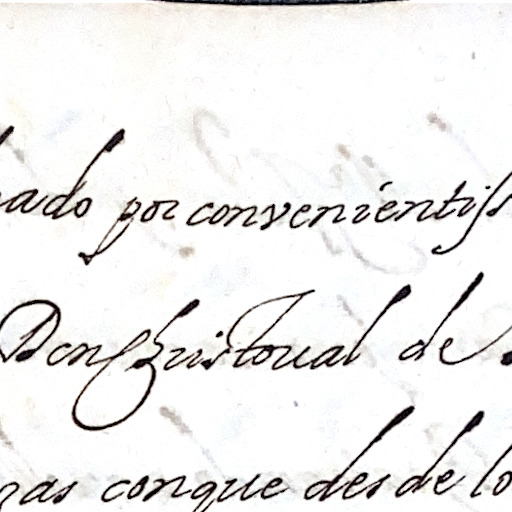 ado por convenientiss
Don Christoual de
ras conque desde lo